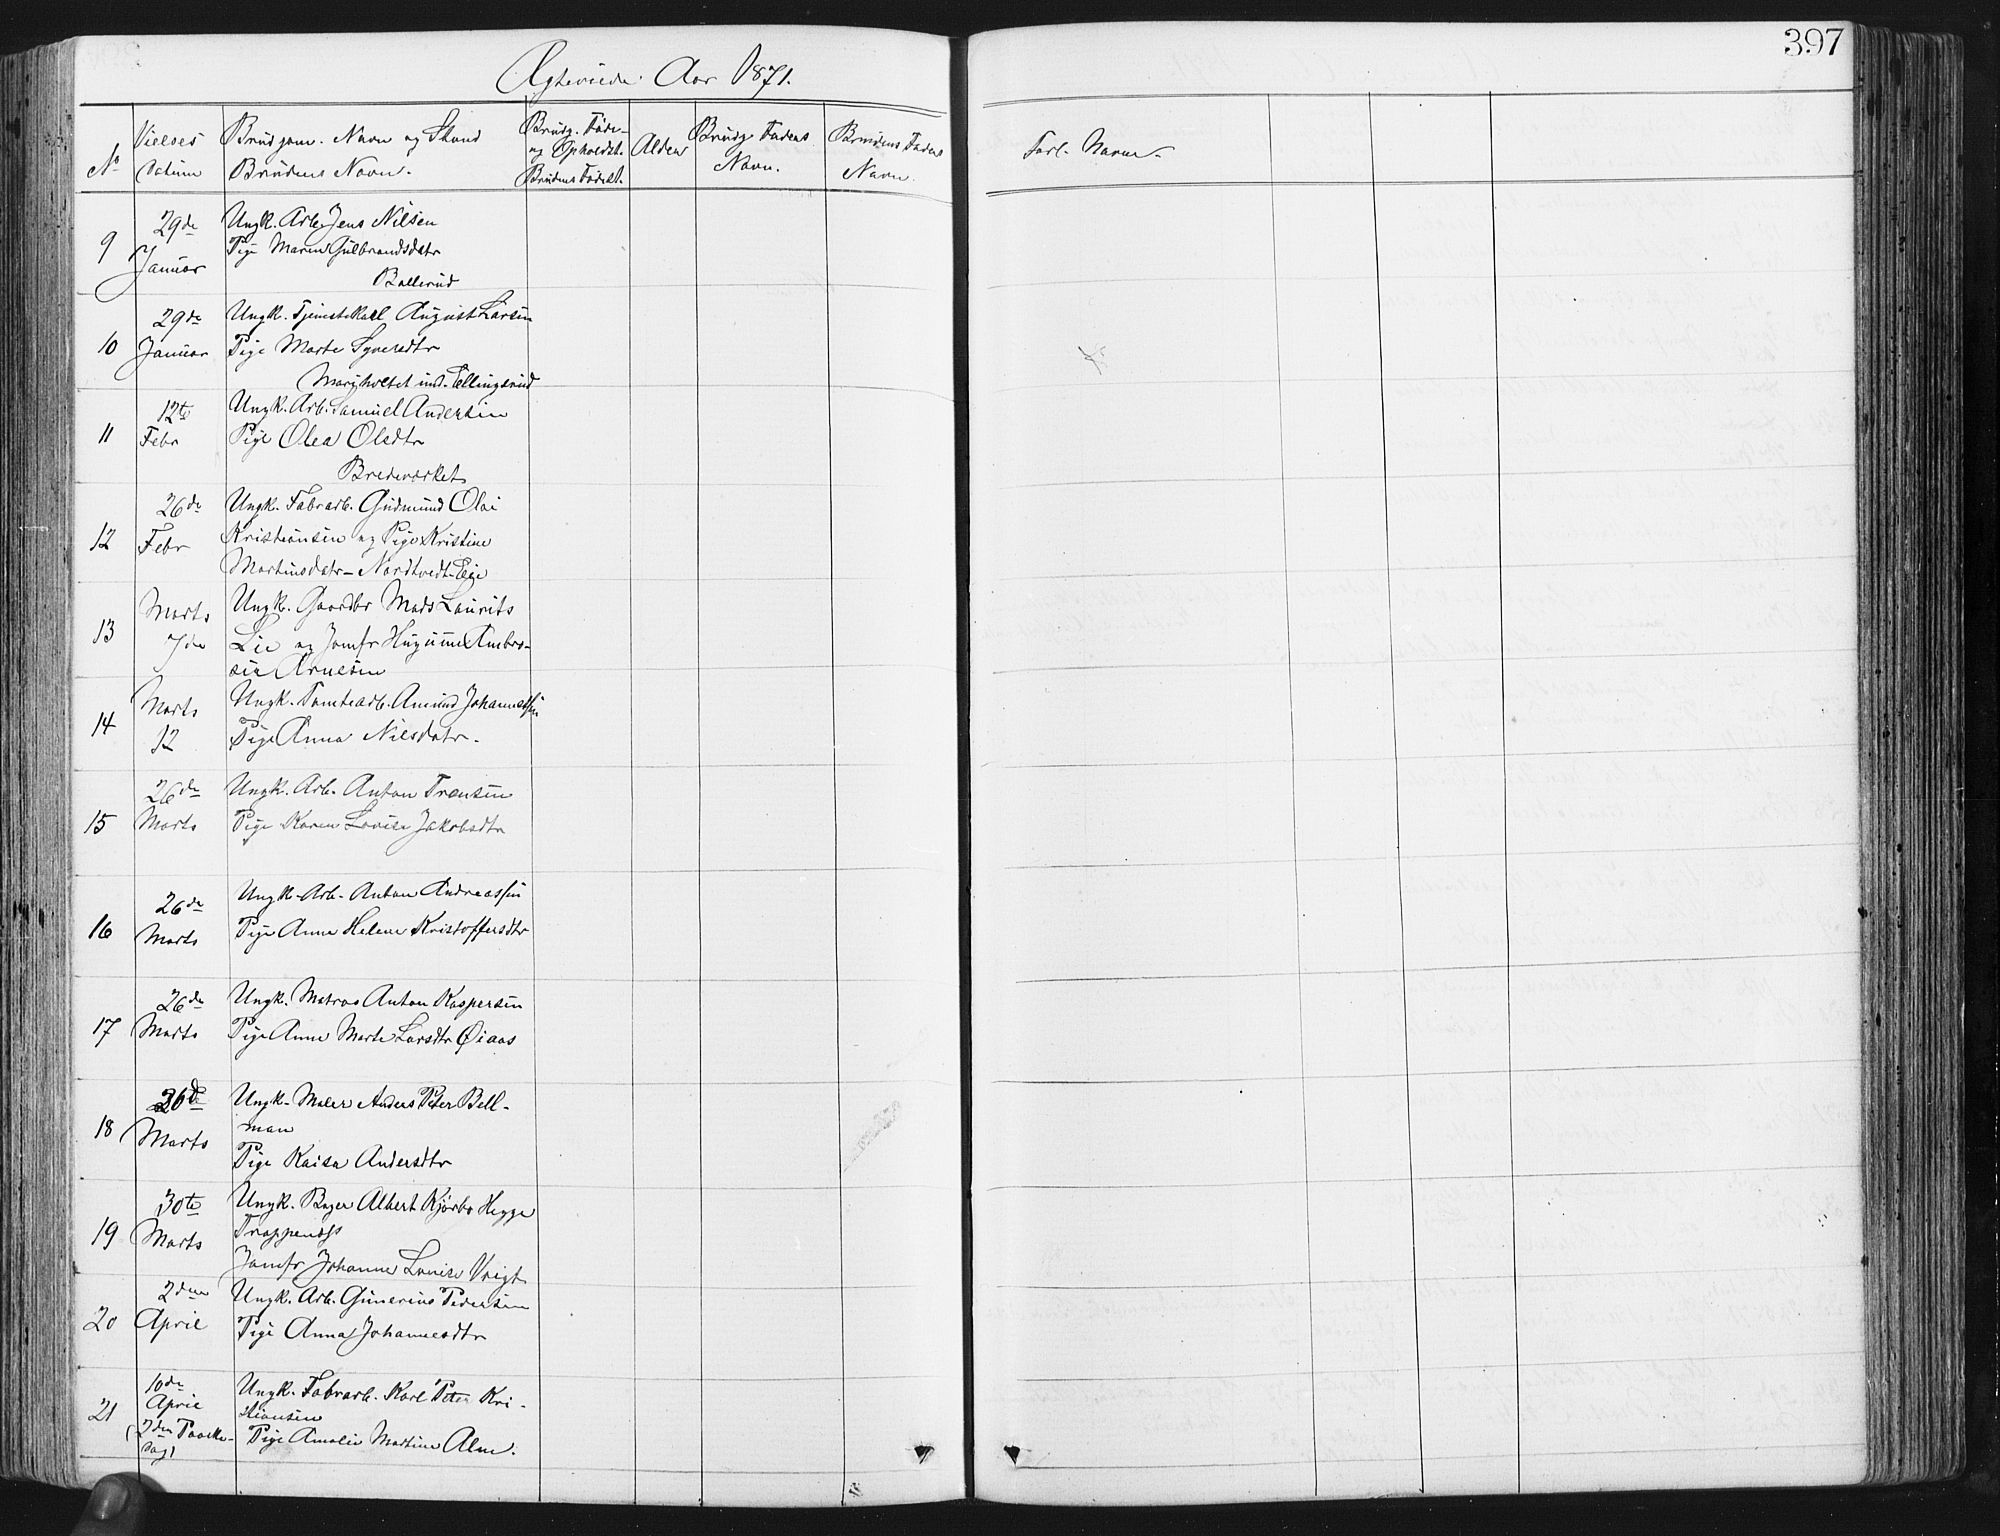 397
Ægteviede Aar 1871.
No
Vielses
Datum
Brudgom. Navn og Stand
Brudens Navn.
Brudg. Føde-
og Opholdst.
Brudens Fødest.
Alder
Brudg. Faders
Navn.
Brudens Faders
Navn.
Forl. Navne.
9
29de
Januar
Ungk. Arb. Jens Nilsen
Pige Maren Gulbrandsdatr
Ballerud
10
29de
Januar
Ungk. Tjenestekarl August Larsen
Pige Marte Syversdtr
ind. Ellingsrud
11
12te
Febr
Ungk. Arb. Samuel Andersen
Pige Olea Olsdtr
Bredeværket
12
26de
Febr
Ungk. Fabrarb. Gudmund Olai
Kristiansen og Pige Kristine
Martinsdatr - Nordtvedt-Eie
13
Marts
7de
Ungk. Gaardbr Mads Laurits
Lie og Jomfr Ambro-
sia Arnesen
14
Marts
12
Ungk. Tomtearb. Amund Johannessen
Pige Anna Nilsdatr.
15
26de
Marts
Ungk. Arb. Anton Fransen
Pige Karen Lovise Jakobsdtr
16
26de
Marts
Ungk. Arb. Anton Andreassen
Pige Anne Helene Kristoffersdtr
17
26de
Marts
Ungk. Matros Anton Kaspersen
Pige Anne Marte Larsdtr Øiaas
18
26de
Marts
Ungk. Maler Anders Peter Bell-
man
Pige Kaisa Andersdtr
19
30te
Marts
Ungk. Bager Albert Kjørbo Hegge
Trappenæss
Jomfr Johanne Lovise Voigt
20
2den
April
Ungk. Arb. Gunerius Pedersen
Pige Anna Johannesdtr
21
10de
April
(2den Paaske-
dag)
Ungk. Fabrarb. Karl Peter Kri-
stiansen
Pige Amalie Martine Alm.